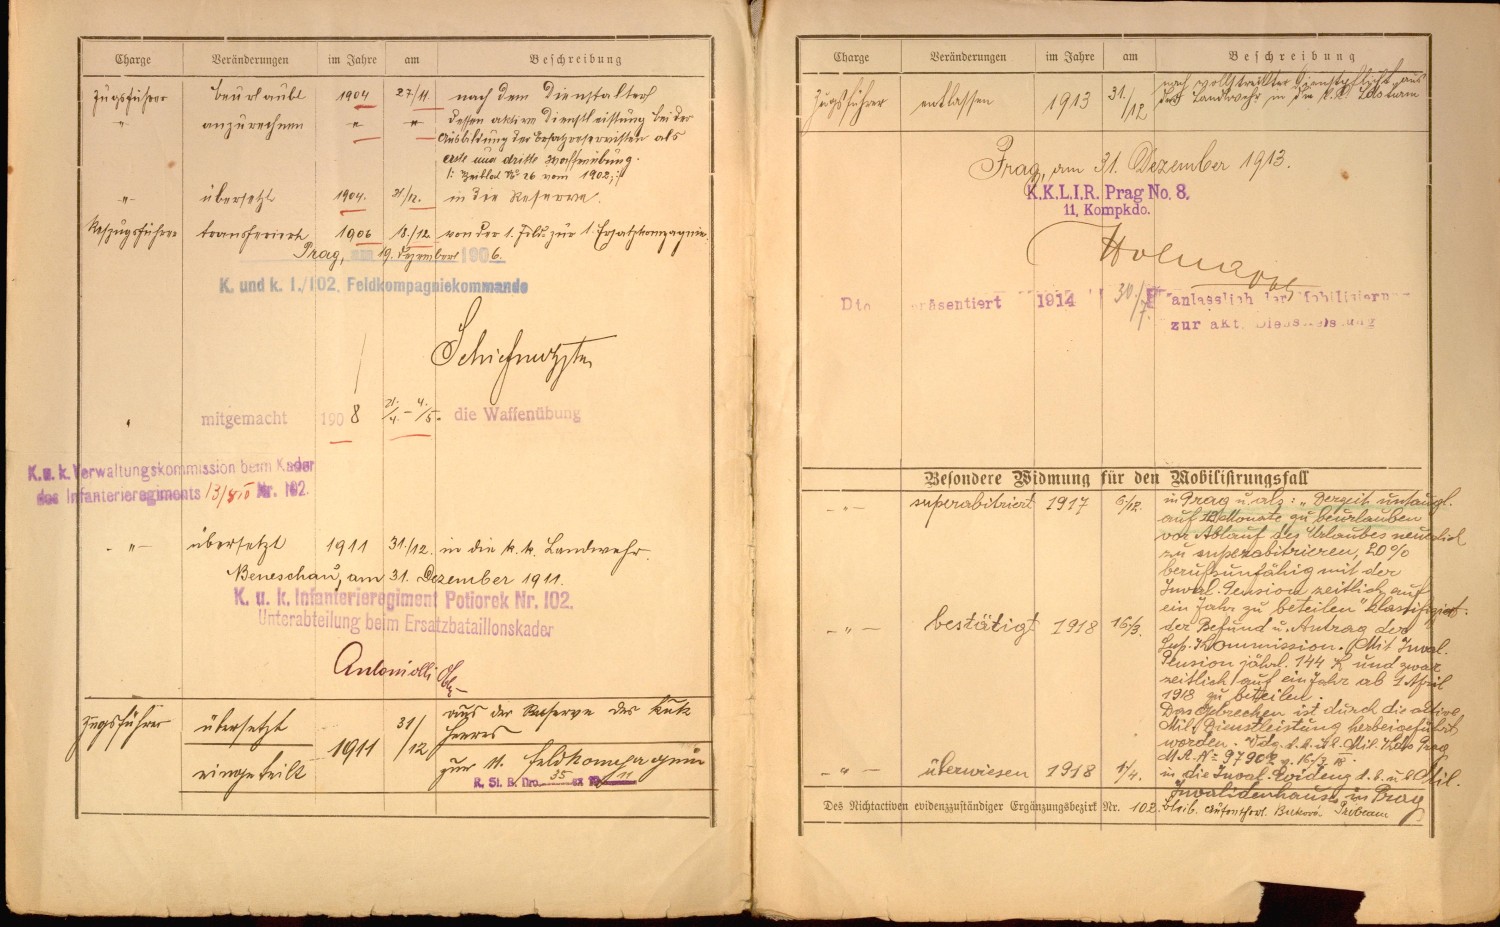 Charge Veränderungen im Jahre am Beschreibung
Zugsführer beurlaubt 1904 27/11. nach dem Dienstalter
" anzurechnen " " dessen aktive Dienstleistung bei der
Ausbildung der Ersatzreservisten als
erste und dritte Waffenübung.
1902
" übersetzt 1904. 31/12. in die Reserve.
transferiert 1906 18/12 von der 1. Feld- zur 1. Ersatzkompagnie.
Prag, am 19. Dezember 1906.
K. und k. 1./102. Feldkompagniekommando
" mitgemacht 1908 21./4. – 4./5. die Waffenübung
K. u. k. Verwaltungskommission beim Kader
des Infanterieregiments Nr. 102.
" übersetzt 1911 31./12. in die k. k. Landwehr.
Beneschau, am 31. Dezember 1911.
K. u. k. Infanterieregiment Potiorek Nr. 102.
Unterabteilung beim Ersatzbataillonskader
Zugsführer übersetzt 1911 31/12 aus der Reserve des kuk
Heeres
eingeteilt zur 11. Feldkompagnie
R. St. B. Nro. 35 ex 1911
Charge Veränderungen im Jahre am Beschreibung
Zugsführer entlassen 1913 31./12 nach vollstreckter Dienstpflicht aus
der Landwehr in den k. k. Landsturm
Prag, am 31. Dezember 1913.
K.K.L.I.R. Prag No. 8.
11. Kompkdo.
präsentiert 1914 30./7. anlasslich der Mobilisierung
zur akt. Dienstleistung
Besondere Widmung für den Mobilisirungsfall
" superabitriert 1917 6/12. in Prag u. als: "Derzeit untaugl.
auf 12 Monate zu beurlauben
vor Ablauf des Urlaubes neuerlich
zu superabitrieren, 20%
berufsunfähig mit der
Inval. Pension zeitlich auf
ein Jahr zu beteilen" klassifiziert.
" bestätigt 1918 16/3. der Befund u. Antrag der
Sup. Kommission. Mit Inval.
Pension jährl. 144 K und zwar
zeitlich auf ein Jahr ab 1 April
1918 zu beteilen.
Das Gebrechen ist durch die aktive
Mil. Dienstleistung herbeigeführt
worden. Vdg. d. k. u. k. Mil. Kdos Prag
M.A. No 9790 v. 16/3 18.
" überwiesen 1918 1/4. in die Inval. Evidenz d. k. u. k. Mil.
Invalidenhauses in Prag
Des Nichtactiven evidenzzuständiger Ergänzungsbezirk Nr. 102.